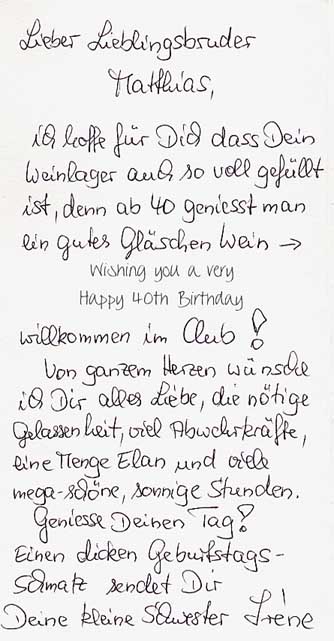 Lieber Lieblingsbruder
Matthias,
ich hoffe für Dich dass Dein
Weinlager auch so voll gefüllt
ist, denn ab 40 geniesst man
ein gutes Gläschen Wein →
Wishing you a very
Happy 40th Birthday
willkommen im Club!
Von ganzem Herzen wünsche
ich Dir alles Liebe, die nötige
Gelassenheit, viel Abwehrkräfte,
eine Menge Elan und viele
mega-schöne, sonnige Stunden.
Geniesse Deinen Tag!
Einen dicken Geburtstags-
Schmatz sendet Dir
Deine kleine Schwester Irène